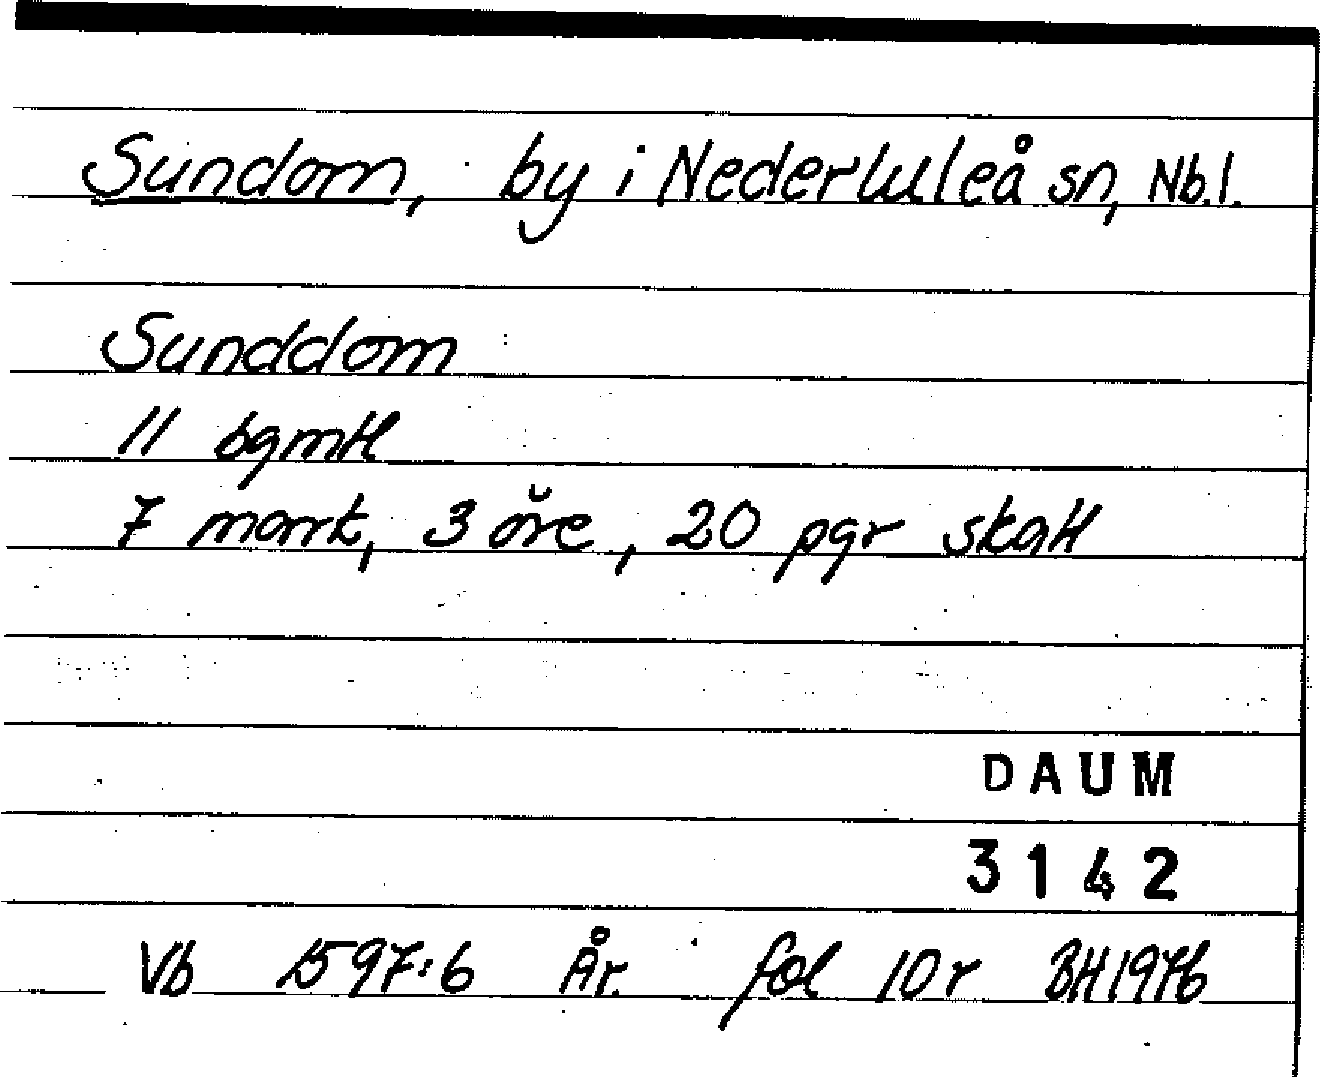 Sundom, by i Nederluleå sn, Nb.l.
Sunddom
11 bgmtl
7 mark, 3 öre, 20 pgr skatt
DAUM
3142
Vb 1597:6 År. fol 10r BH1976